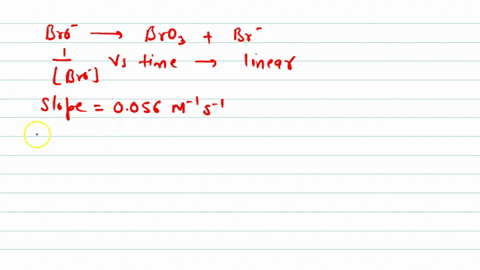 BrO⁻ → BrO₃ + Br⁻
1/[BrO⁻] Vs time → linear
Slope = 0.056 M⁻¹s⁻¹